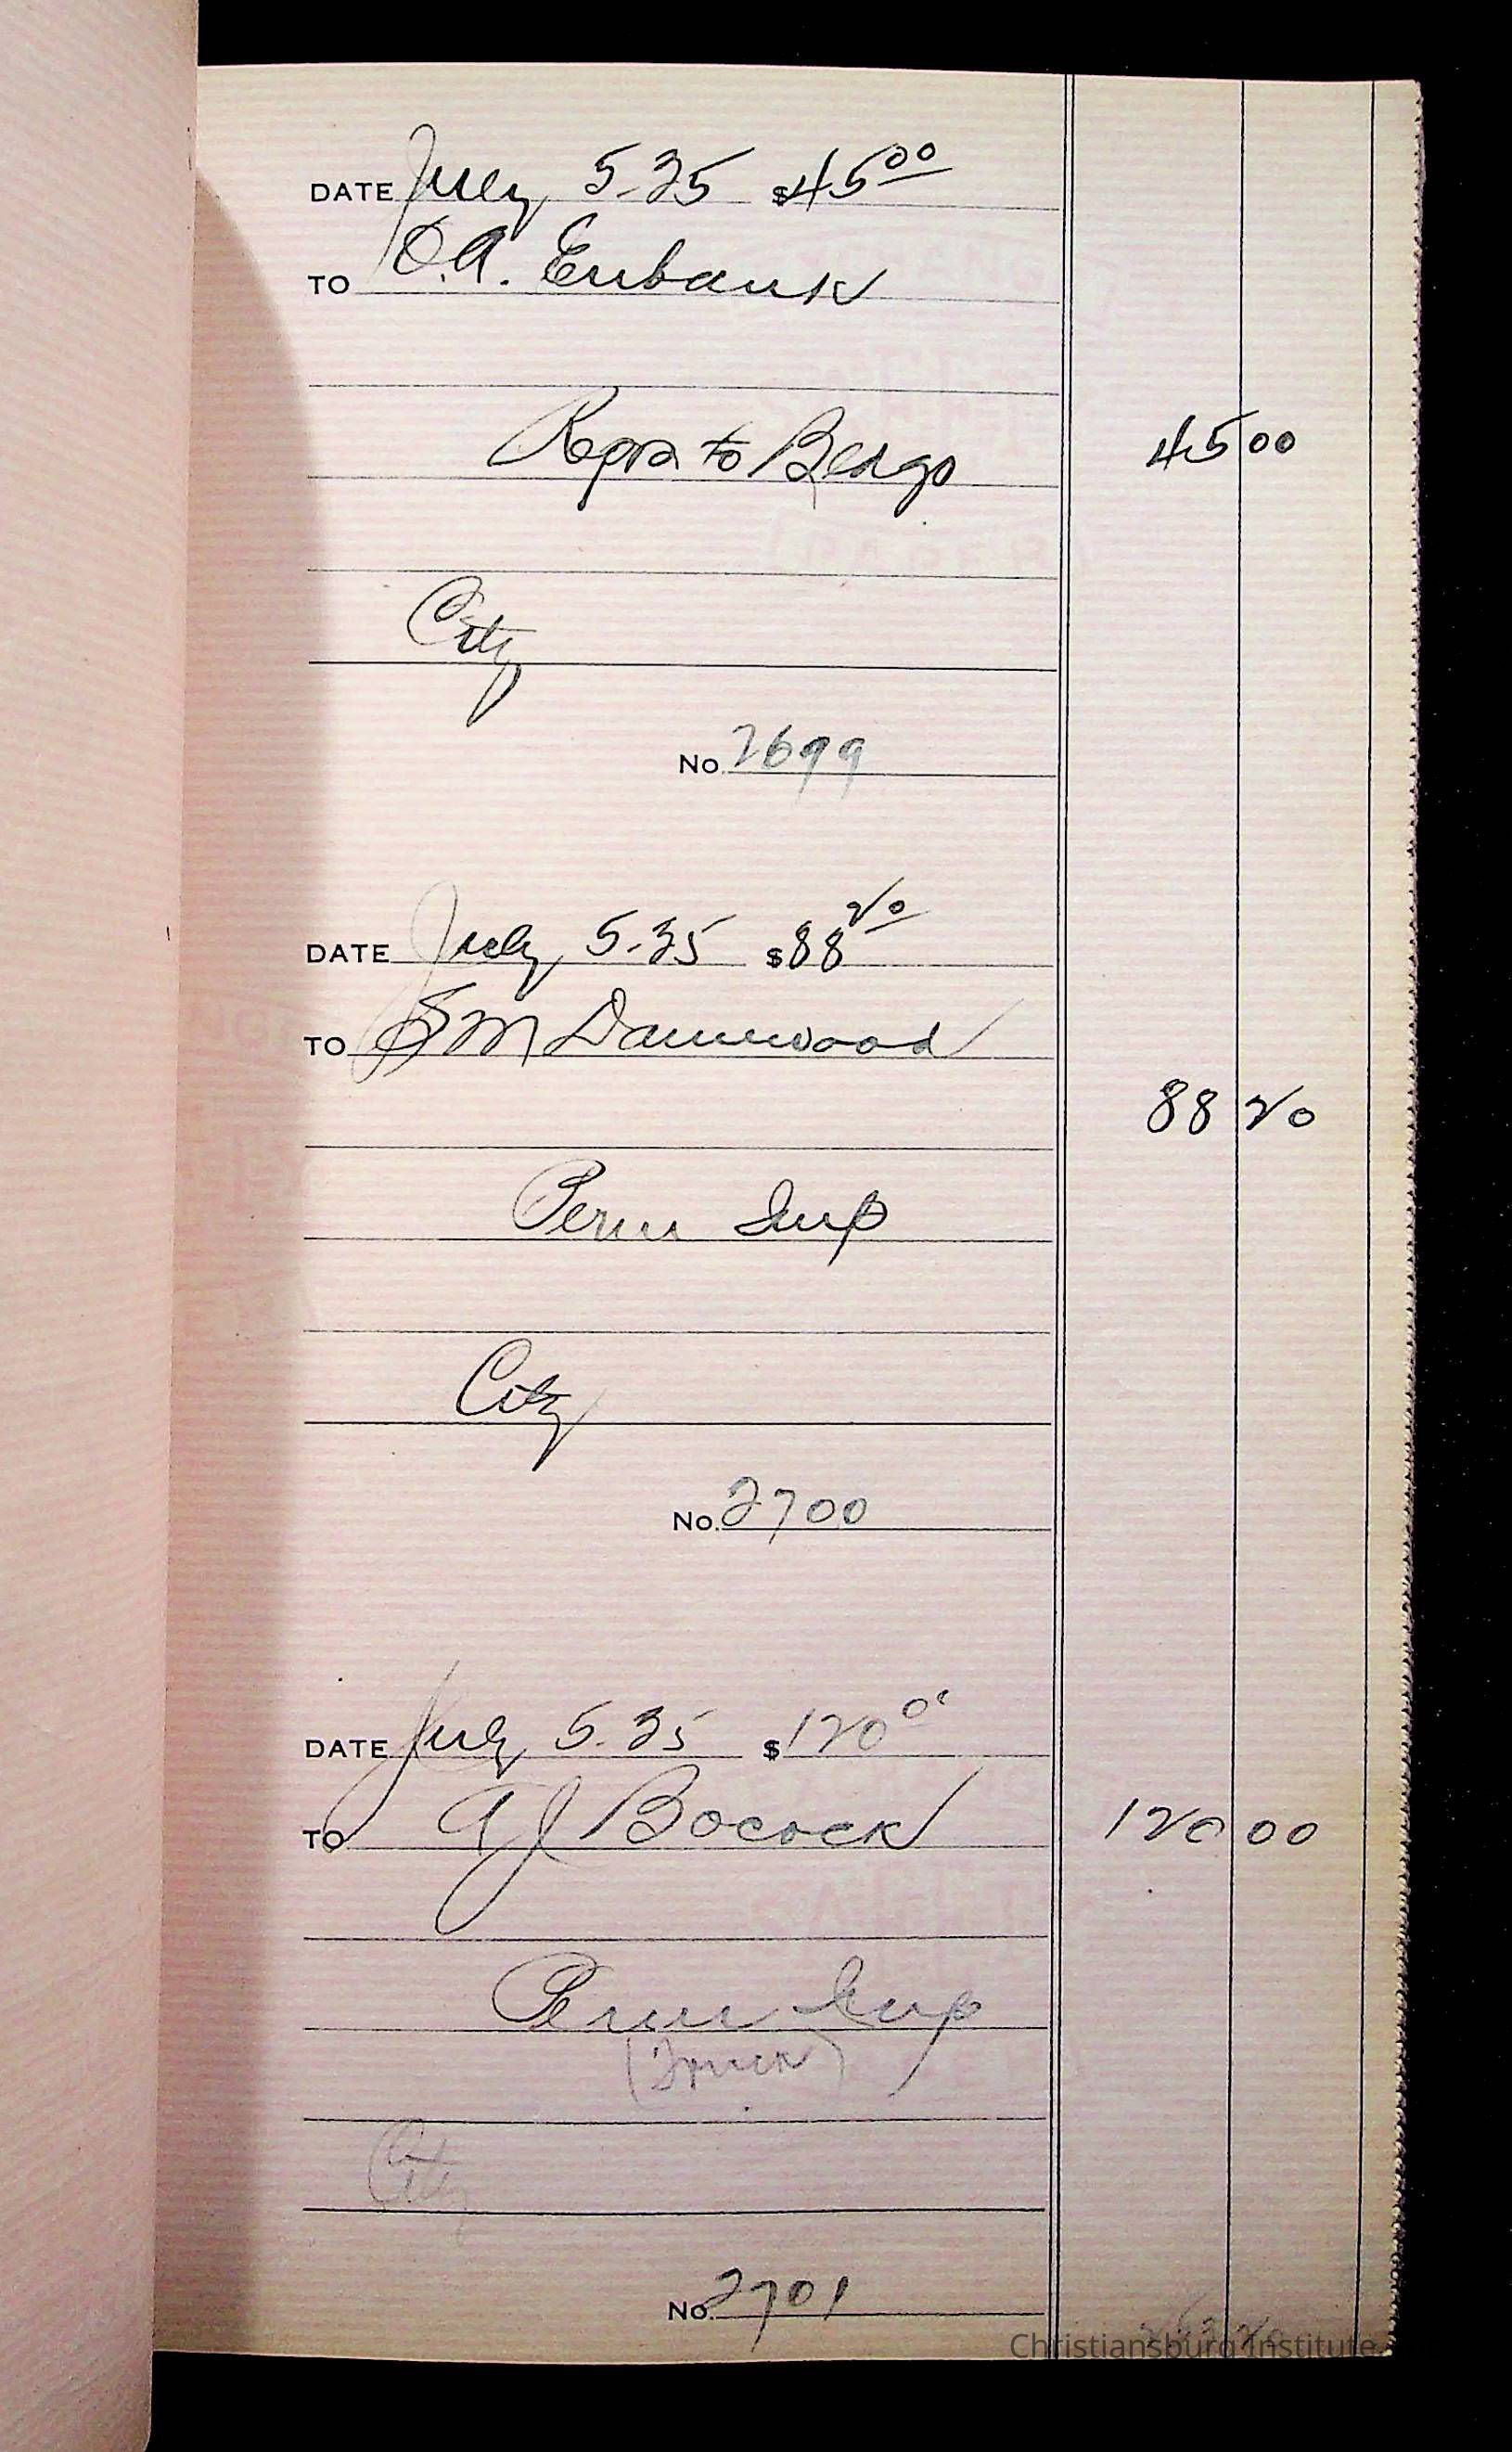 DATE July 5-35 $45 00
TO O.A. Eubank
Reprs to Bldgs 45 00
City
No. 2699
DATE July 5-35 $88 20
TO S M Dannwood
88 20
Perm Imp
City
No. 2700
DATE July 5-35 $120 00
TO A J Bocock 120 00
Perm Imp
(Truck)
City
No. 2701
Christiansburg Institute